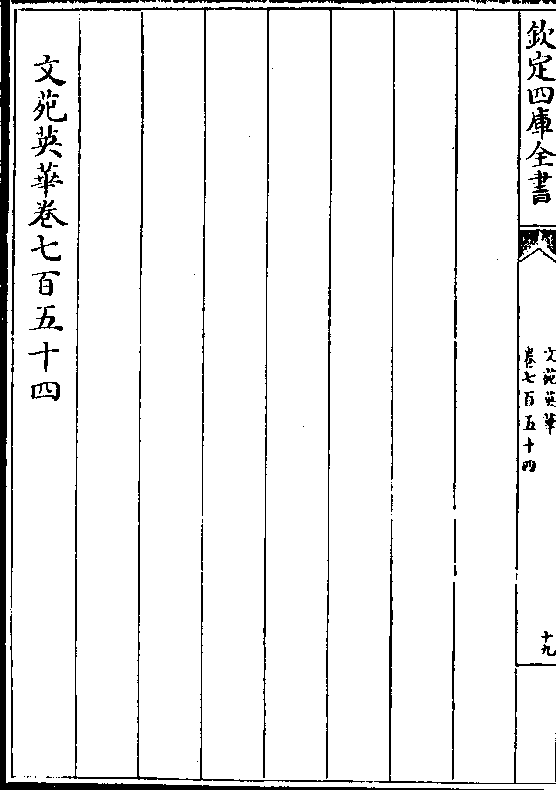 欽定四庫全書
文苑英華
卷七百五十四
十九
文苑英華卷七百五十四